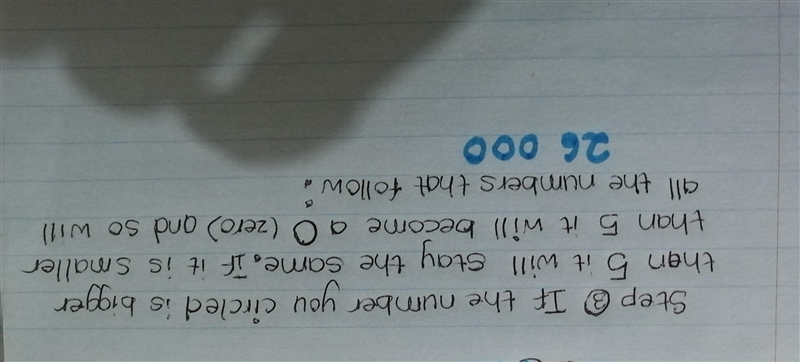 Step ③ If the number you circled is bigger
than 5 it will stay the same. If it is smaller
than 5 it will become a 0 (zero) and so will
all the numbers that follow:
26 000